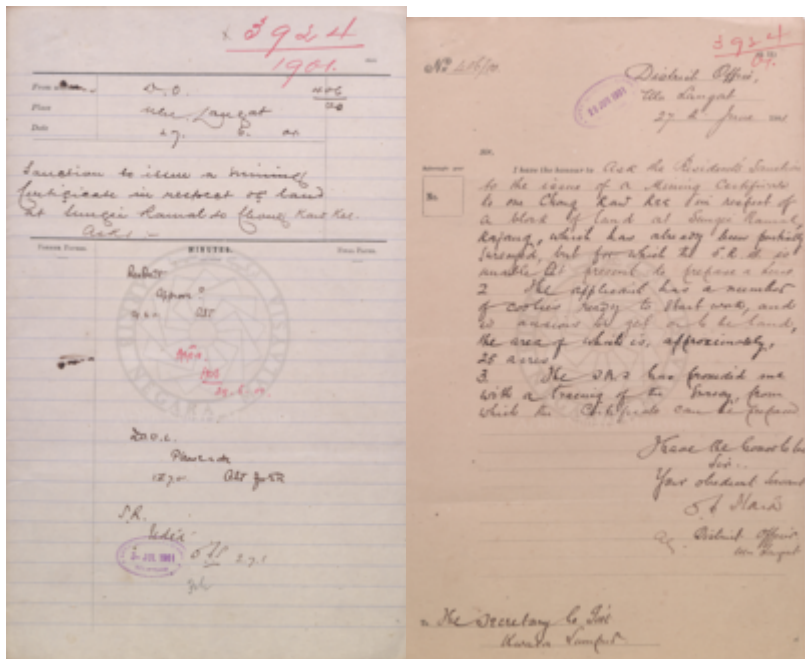 3924
1901.
From
D.O.
406
Place
Ulu Langat
Date
27. 6. 01
Sanction to issue a mining
Certificate in respect of land
at Sungei Ramal to Chong Kaw Kee
Asks —
MINUTES.
Resdt
Approve?
29.6.01
D.O.U.L.
S.R.
JUL 1901
3924
01.
No 406/01
District Office,
Ulu Langat
27th June 1901
JUN 1901
Sir,
No.
I have the honour to ask the Resident's Sanction
to the issue of a Mining Certificate
to one Chong Kaw Kee in respect of
a block of land at Sungei Ramal,
Kajang, which has already been partially
surveyed, but for which the S.R. is
unable at present to prepare a
2. The applicant has a number
of coolies ready to start work, and
is anxious to get on to the land,
the area of which is, approximately,
25 acres
3. The has provided me
with a tracing of the survey, from
which the Certificate can be prepared
I have the honor to be
Sir..
Your obedient Servant
ag. District Officer
Ulu Langat
The Secretary to Govt
Kuala Lumpur